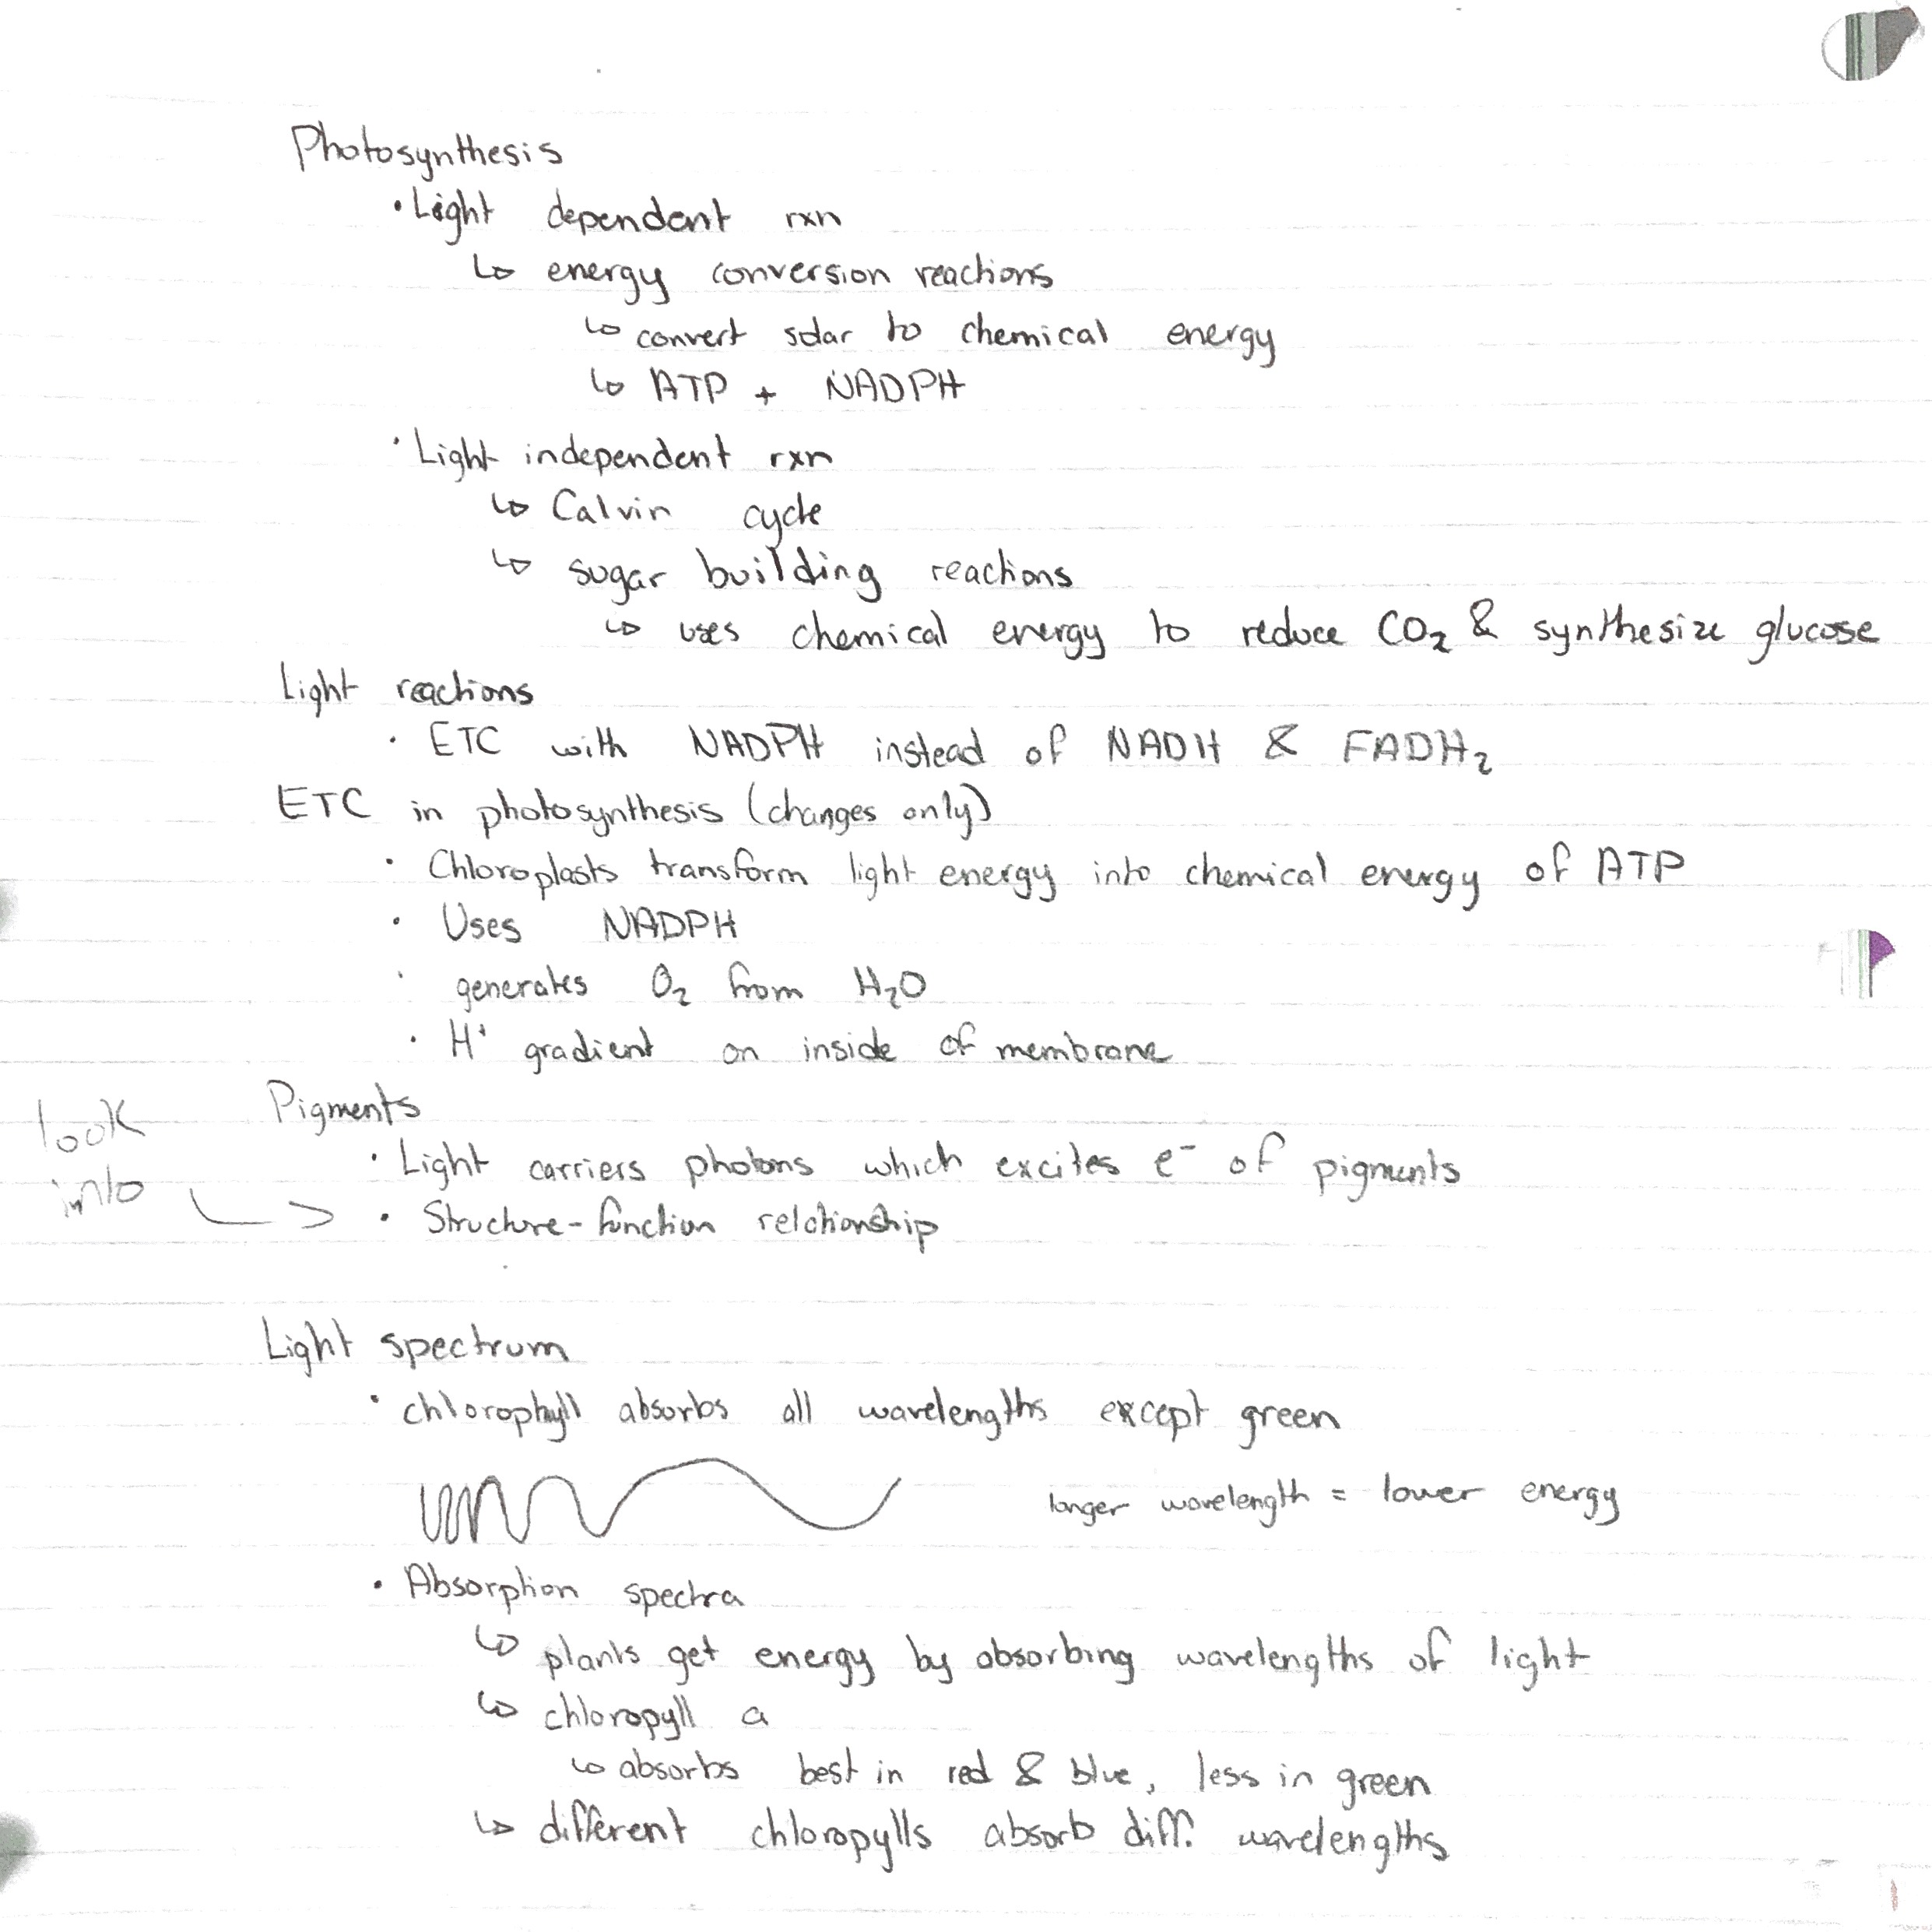 Photosynthesis
• Light dependent rxn
↳ energy conversion reactions
↳ convert solar to chemical energy
↳ ATP + NADPH
• Light independent rxn
↳ Calvin cycle
↳ sugar building reactions
↳ uses chemical energy to reduce CO₂ & synthesize glucose
Light reactions
• ETC with NADPH instead of NADH & FADH₂
ETC in photosynthesis (changes only)
• Chloroplasts transform light energy into chemical energy of ATP
• Uses NADPH
• generates O₂ from H₂O
• H⁺ gradient on inside of membrane
Pigments
• Light carriers photons which excites e⁻ of pigments
look into → • Structure-function relationship
Light spectrum
• chlorophyll absorbs all wavelengths except green
longer wavelength = lower energy
• Absorption spectra
↳ plants get energy by absorbing wavelengths of light
↳ chloropyll a
↳ absorbs best in red & blue, less in green
↳ different chloropylls absorb diff. wavelengths